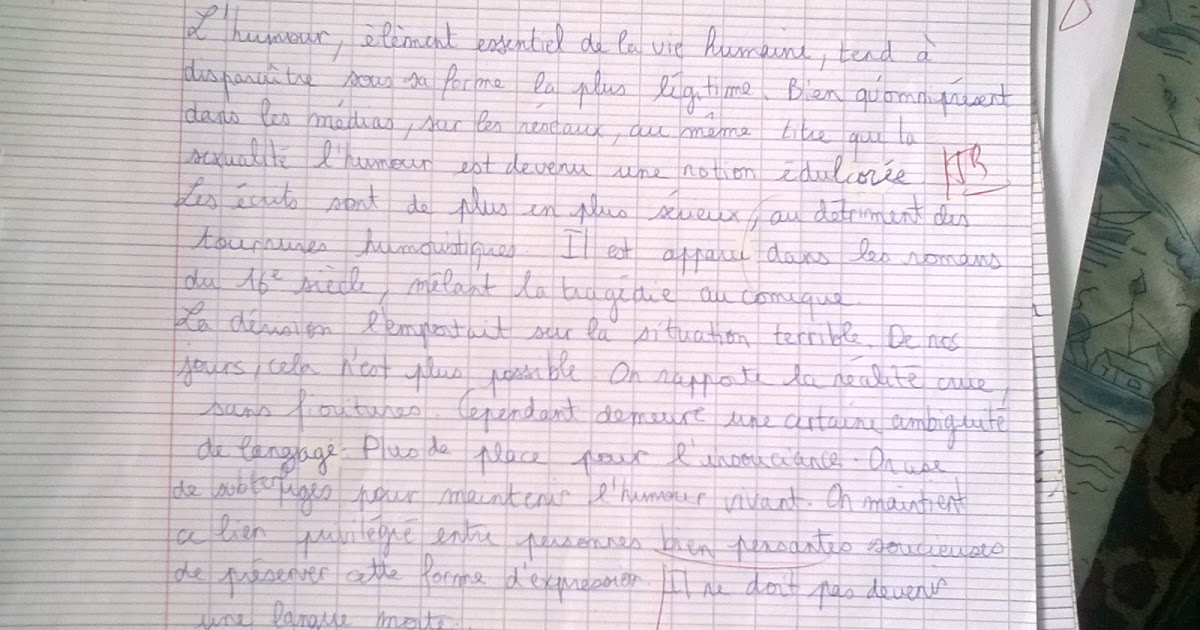 L'humour, élément essentiel de la vie humaine, tend à
disparaître sous sa forme la plus légitime. Bien qu'omniprésent
dans les médias, sur les réseaux, au même titre que la
sexualité l'humour est devenu une notion édulcorée
Les écrits sont de plus en plus sérieux, au détriment des
tournures humouristiques. Il est apparu dans les romans
du 16e siècle, mêlant la tragédie au comique
La dérision l'emportait sur la situation terrible. De nos
jours, cela n'est plus possible On rapporte la réalité crue,
sans fioritures. Cependant demeure une certaine ambiguité
de langage. Plus de place pour l'insouciance. On use
de subterfuges pour maintenir l'humour vivant. On maintient
ce lien privilégié entre personnes bien pensantes soucieuses
de préserver cette forme d'expression. Il ne doit pas devenir
une langue morte.